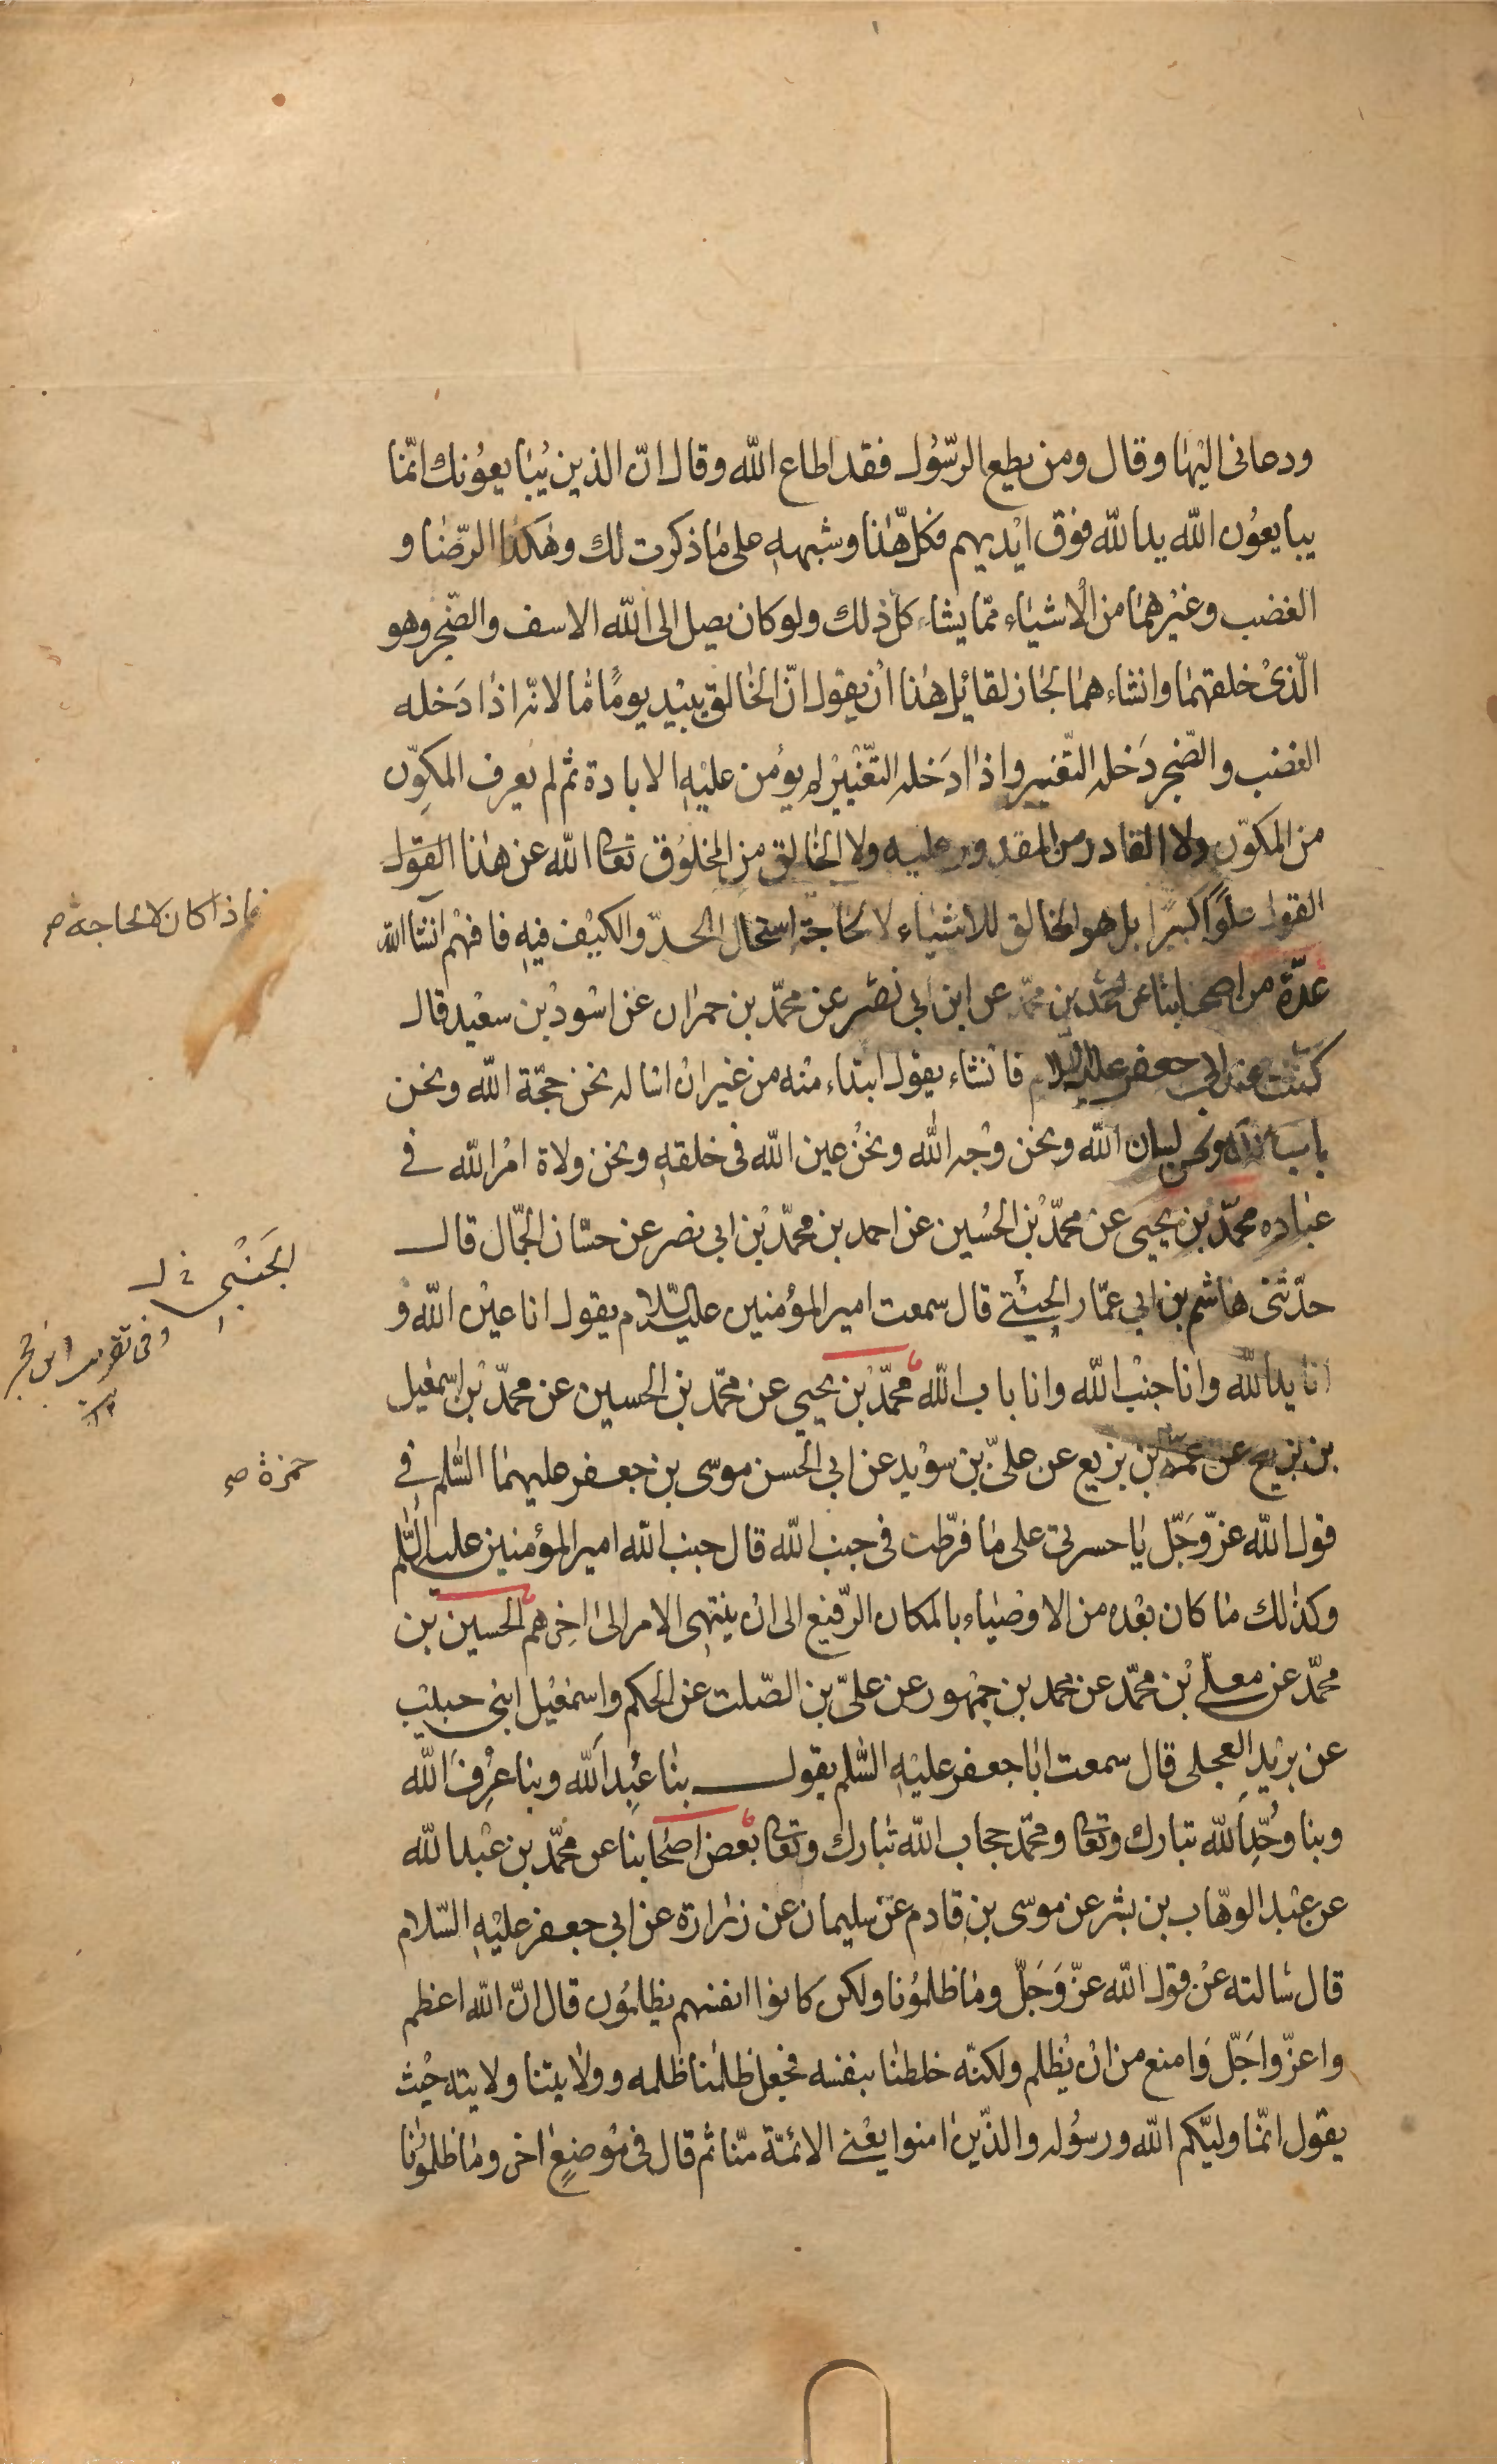 ودعانى اليها وقال ومن يطع الرّسُول فقد اطاع الله وقال انّ الذين يُبايعوُنك انّما
يبايعوُن الله يد الله فوق ايْديهم فكلّ هٰذا وشبهه على ما ذكرت لك وهٰكذا الرّضا و
الغضب وغيْرهما من الْاشياء ممّا يشاء كل ذلك ولو كان يصل الى الله الاسف والضّجر وهو
الّذىْ خلقهما وانشاءهما لجاز لقائل هٰذا انْ يقول انّ الخالق يبيْد يومًا ما لانّه اذا دَخله
الغضب والضّجر دَخله التّغيير واذا ادَخله التّغْييْر لم يؤمن عليْهِ الابادة ثم لم يعرف المكوِّن
من المكوَّن ولا القادر من المقدور عليه ولا الخالق من المخلوُق تعالى الله عن هٰذا القوْل
القول علوًّا كبيرًا بل هو الخالق للاشياء لا لحاجة استحال الحدّ والكيْف فيهِ فافهمْ انشا الله
عدّة من اصحابنا عن احمد بن محمّد عن ابن ابي نصْر عن محمّد بن حمران عن اسْود بْن سعيْد قال
كنت عند ابى جعفر عليه السلام فانْشاء يقول ابتداء منْه من غيْر انْ اساله نحن حجّة الله ونحن
باب الله ونحن لسان الله ونحن وجْه الله ونحْن عين الله فى خلقهِ ونحن ولاة امْر الله فى
عبادهِ محمّد بْن يحيى عن محمّد بْن الحُسين عن احمد بن محمّد بْن ابى نصر عن حسّان الجمّال قال
حدّثنى هاشم بن ابي عمّار الجينتى قال سمعت امير المؤْمنين عليه السّلام يقول انا عيْن الله و
انا يد الله وانا جنْب الله وانا باب الله محمّد بْن يحيي عن محمّد بن الحسين عن محمّد بْن اسمٰعيل
بن بزيع عن عمّه بن بزيع عن علىّ بن سوْيد عن ابي الحسن موسى بن جعفر عليهما السّلم فى
قول الله عزّ وَجَلّ يا حسرتى على ما فرّطت فى جنب الله قال جنب الله امير المؤمنين عليه السّلم
وكذٰلك ما كان بعْده من الاوْصياء بالمكان الرّفيع الى انْ ينتهى الامر الى اخِرهم الحسين بن
محمّد عن معلّى بْن محمّد عن محمد بن جمْهور عن علىّ بن الصّلت عن الحكم واسمٰعيْل ابنى حبيْب
عن بريْد العجلى قال سمعت ابا جعفر عليْهِ السّلم يقول بنا عُبِد الله وبنا عُرِفَ الله
وبنا وُحِّدَ الله تبارك وتعالى ومحمّد حجاب الله تبارك وتعالى بعْض اصْحابنا عن محمّد بن عبْد الله
عن عبْد الوهّاب بن بشر عن موسى بن قادم عن سليمان عن زرارة عن ابي جعفر عليْهِ السّلام
قال سالته عنْ قول الله عزّ وَجَلّ وما ظلمُونا ولكن كانوا انفسهم يظلموُن قال انّ الله اعظم
واعزّ واجَلّ وَامنع من انْ يُظلم ولكنّه خلطنا بنفسه فجعل ظلْمنا ظلمه وولايتنا ولايته حيْث
يقول انّما وليّكم الله ورسوُله والذّين امنوا يعْنى الائمّة منّا ثم قال فى موْضعٍ اخر وما ظلموُنا
فاذا كان لا لحاجة صح
الجَنْبي خ ل
وفى تقريب ابن حجر
حمزة صح